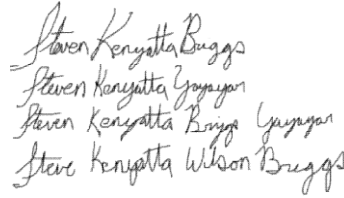 Steven Kenyatta Buggs
Steven Kenyatta Yayayar
Steven Kenyatta Briggs Yayayar
Steve Kenyatta Wilson Bruggs